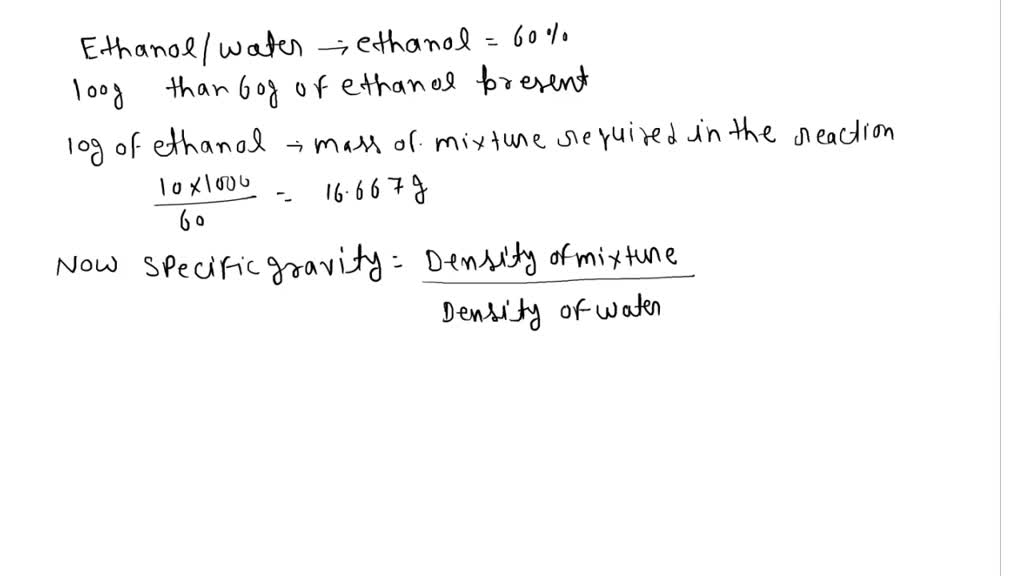 Ethanol/water → ethanol = 60%
100g than 60g of ethanol present
10g of ethanol → mass of mixture required in the reaction
10×1000/60 = 16.667g
Now specific gravity = Density of mixture / Density of water